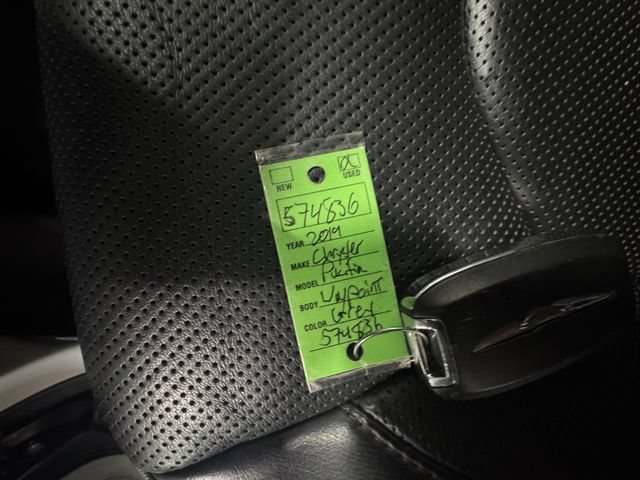 NEW USED
574836
YEAR 2019
MAKE Chrysler
MODEL Pacifica
BODY WayPoint
COLOR Grey
574836